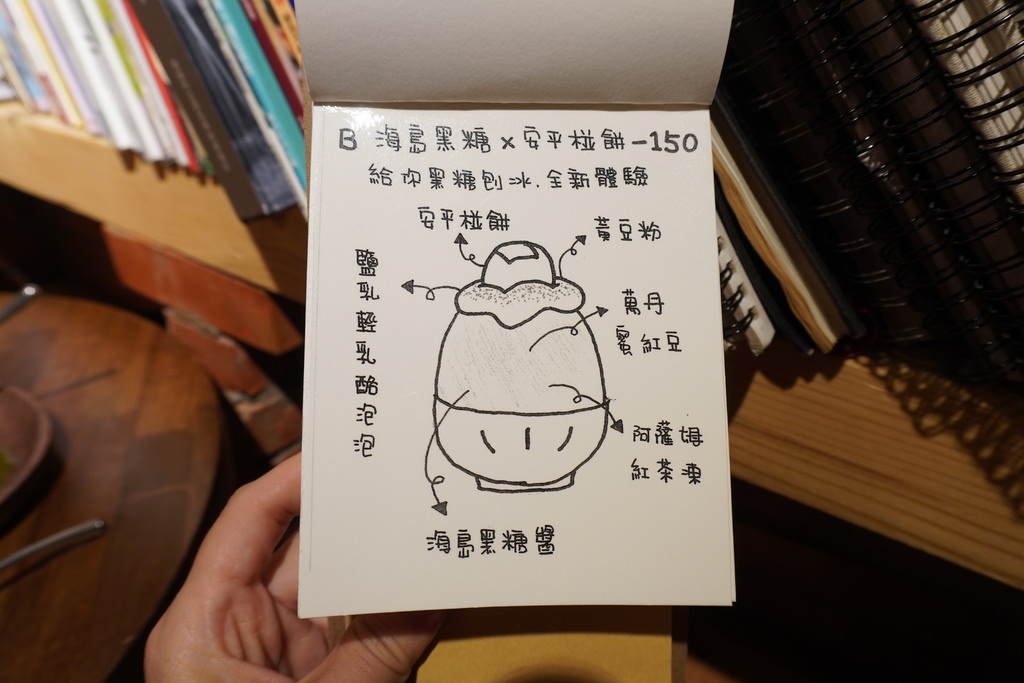 B 海島黑糖 x 安平椪餅 -150
給你黑糖刨冰.全新體驗
安平椪餅
黃豆粉
鹽乳輕乳酪泡泡
萬丹
蜜紅豆
阿薩姆
紅茶凍
海島黑糖醬